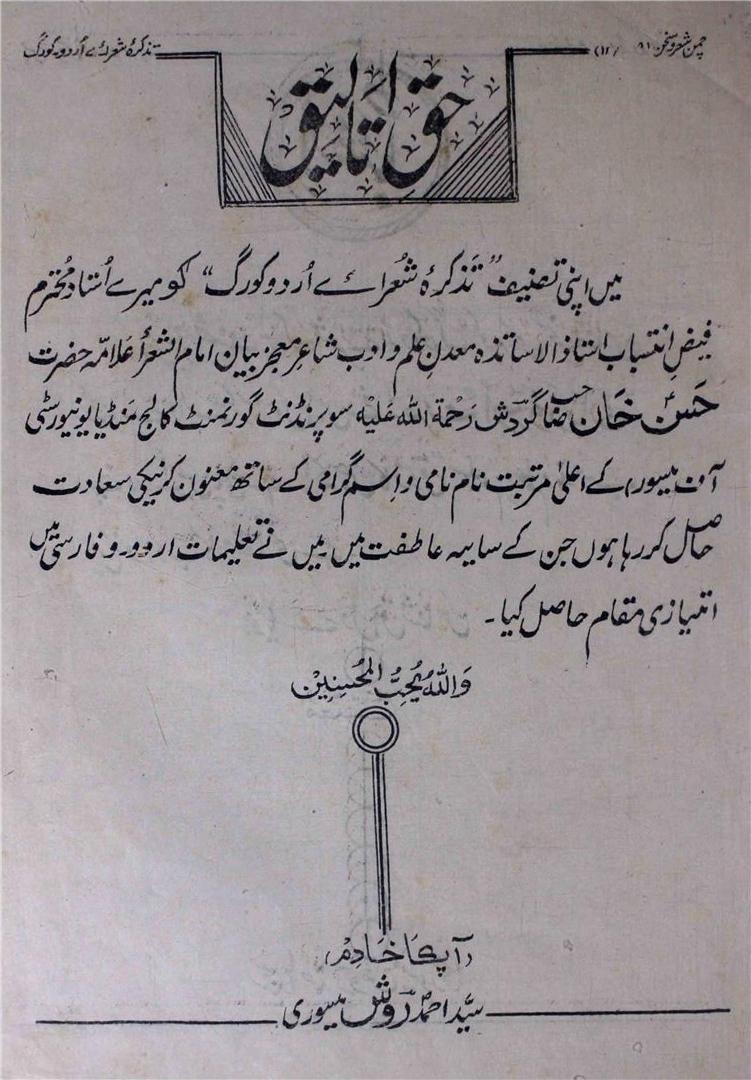 چمن شعر و سخن ۹۱ (۱۲) تذکرۂ شعرائے اُردو کورگ
حق اتالیق
میں اپنی تصنیف "تذکرۂ شعرائے اُردو کورگ" کو میرے اُستاد محترم
فیضِ انتساب استاذ الاساتذہ معدنِ علم و ادب شاعرِ معجز بیان امام الشعرأ علامہ حضرت
حَسن خَان صَاحب گردش رَحمۃ اللہ عَلیہ سوپرنڈنٹ گورنمنٹ کالج مَنڈیا یونیورسٹی
آف میسور) کے اعلیٰ مرتبت نام نامی و اِسم گرامی کے ساتھ معنون کرنیکی سعادت
حاصل کر رہا ہوں جن کے سایہ عاطفت میں مَیں نے تعلیمات اردو۔و فارسی میں
امتیازی مقام حاصل کیا۔
وَاللہُ یُحِبُّ المُحسِنِین
(آپکا خَادِم)
سیّد احمد روش میسوری